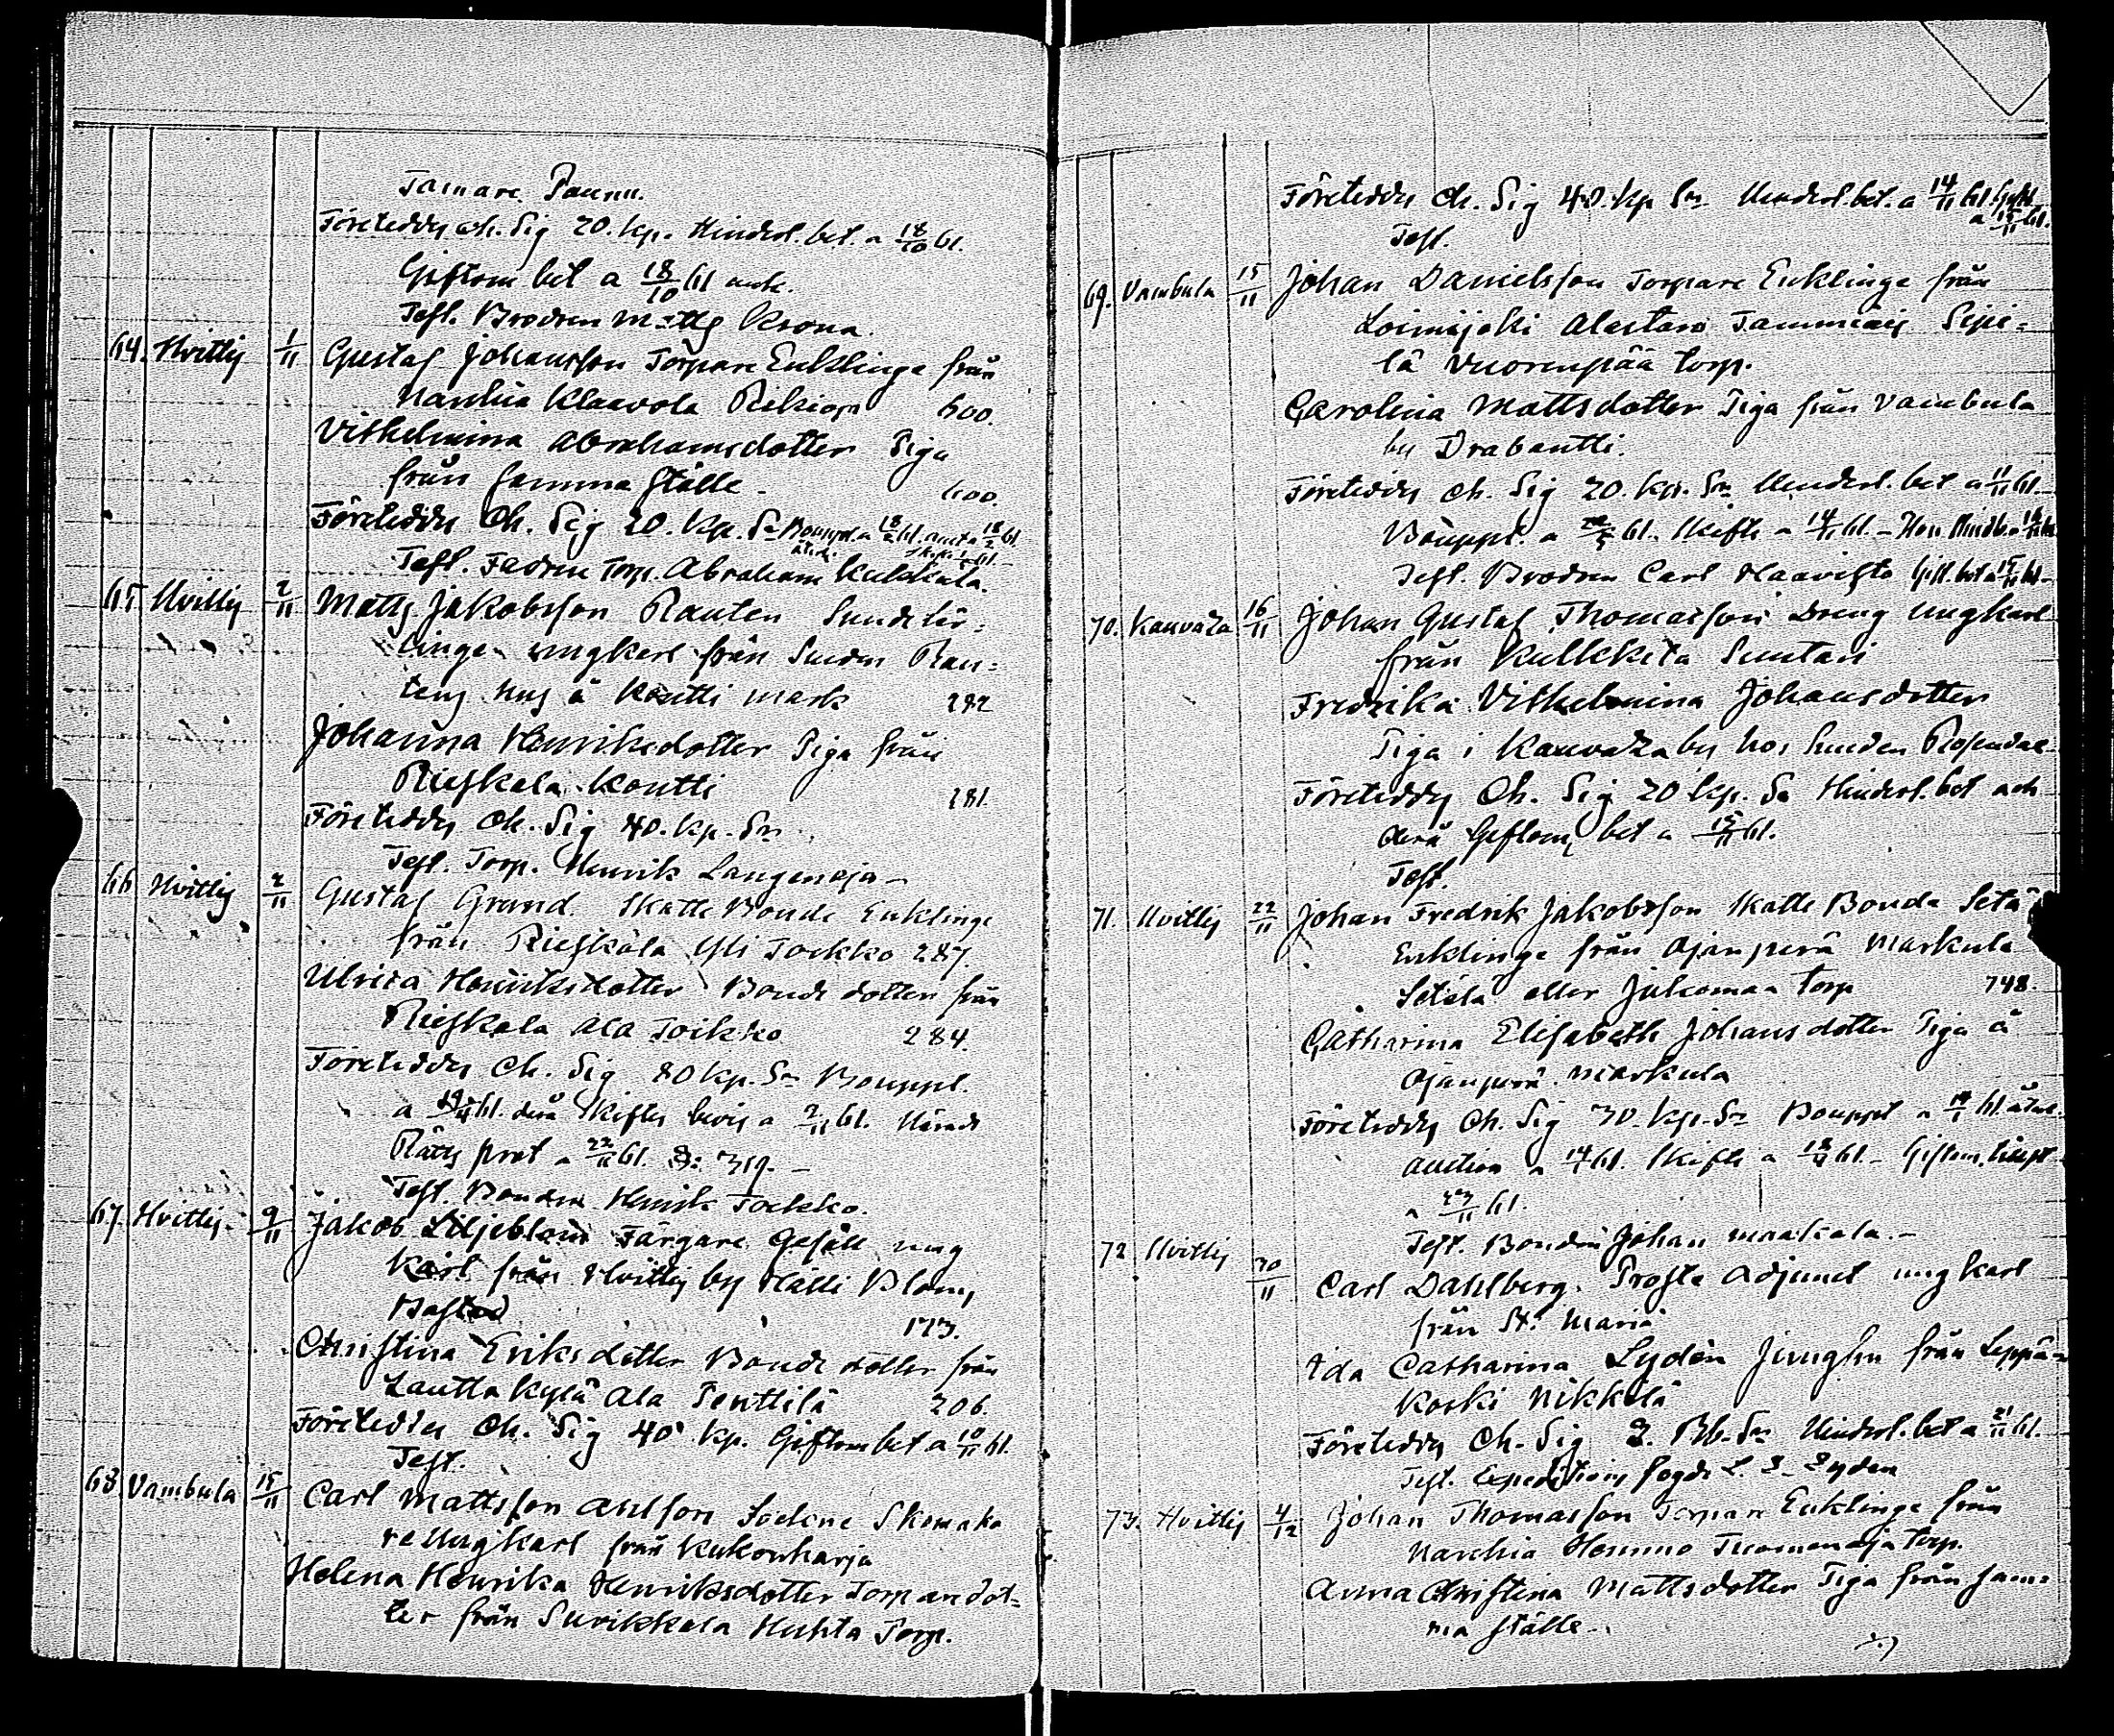 Tamare Paunu.
Företeddes Ch. Sig 20. kp. Hindersl. bet. a 18/10 61.
Giftom bet a 18/10 61
Test. Brodren Matts Krona
64. Hvittis 1/11 Gustaf Johansson Torpare Enklinge från
Nanhia Klaavola Rekioja 600.
Vilhelmina Abrahamsdotter Piga
från samma ställe. 600.
Företeddes Ch. Sig 20. kp. Sr Bouppt. a 61.
Test. Fadren Torp. Abraham Kukkula.
65. Hvittis 2/11 Matts Jakobsson Rauten
linge ungkarl från Rau=
tens hus å Kontti mark 282
Johanna Henriksdotter Piga från
Rieskala Kontti 281.
Företeddes Ch. Sig 40. kp. Sr
Test. Torp. Henrik Langenoja –
66 Hvittis 2/11 Gustaf Grund. Skatte Bonde Enklinge
från Rieskala Yli Toikko 287.
Ulrica Henriksdotter Bonde dotter från
Rieskala Ala Toikko 284.
Företeddes Ch. Sig 80 kp. Sr Bouppt.
a 61. Skiftes bevis a 2/11 61. Härads
Rätts prot a 22/11 61. §: 319. –
Test. Bonden Henrik Toikko.
67. Hvittis 9/11 Jakob Liljeblom Färgare Gesäll ung
karl från Hvittis by Källi Bloms
173.
Christina Eriksdotter Bonde dotter från
Lauttakylä Ala Penttilä 206.
Företeddes Ch. Sig 40 kp. Giftom bet a 10/11 61.
Test.
68 Vambula 15/11 Carl Mattsson Ahlfors Sockne Skomaka
re Ungkarl från Kukonharja
Helena Henrika Henriksdotter Torpare dot=
ter från Surikkala Huhta Torp.
Företeddes Ch. Sig 40. kp Sr Hindersl. bet. a 14/11 61.
a 15/11 61.
Test.
69. Vambula 15/11 Johan Danielsson Torpare Enklinge från
Loimijoki Alastaro Tammiais Sipi=
lä Vuorenpää torp.
Carolina Mattsdotter Piga från Vambula
by Drabantti.
Företeddes Ch. Sig 20. kp. Sr Hindersl. bet a 11/11 61.
Bouppt. a 61. Skifte a 14/11 61. –
Test. Brodren Carl Haavisto Gift. bet a 15/11 61 –
70. Kauvaza 16/11 Johan Gustaf Thomasson Dreng Ungkarl
från Kulkkila Suutari
Fredrika Vilhelmina Johansdotter
Piga i Kauvaza by hos Smeden Rosendal
Företeddes Ch. Sig 20 kp. Sr Hindersl. bet och
derå Giftom. bet a 15/11 61.
Test.
71. Hvittis 22/11 Johan Fredrik Jakobsson Skatte Bonde Setä
Enklinge från Ojanperä Markula
Setälä eller Juhomaa Torp 748.
Catharina Elisabeth Johansdotter Piga å
Ojanperä Markula
Företeddes Ch. Sig 30. kp. Sr Bouppt a 61.
auction a 61. Skifte a 61. – Giftom.
a 23/11 61.
Test. Bonden Johan Markula. –
72 Hvittis 30/11 Carl Dahlberg. Proste Adjunct ungkarl
från St: Maria
Ida Catharina Lydén Jungfru från Leppä=
koski Nikkilä
Företeddes Ch. Sig 3. Rb. Sr Hindersl. bet a 21/11 61.
Test. Expeditions fogde Lyden
73. Hvittis 4/12 Johan Thomasson Torpare Enklinge från
Nanhia Hemmo Tuomenoja torp.
Anna Christina Mattsdotter Piga från sam=
ma ställe.